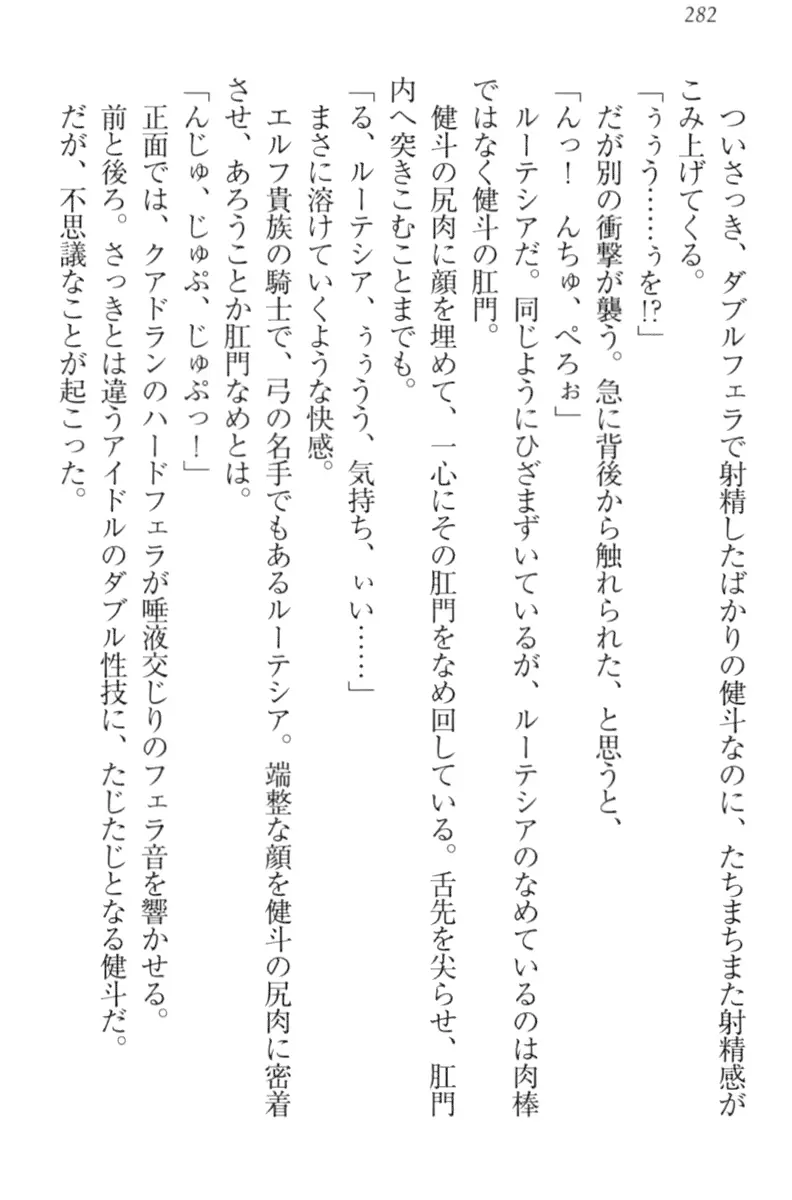 282
ついさっき、ダブルフェラで射精したばかりの健斗なのに、たちまちまた射精感が
こみ上げてくる。
「ぅぅう……ぅを!?」
だが別の衝撃が襲う。急に背後から触れられた、と思うと、
「んっ！　んちゅ、ぺろぉ」
ルーテシアだ。同じようにひざまずいているが、ルーテシアのなめているのは肉棒
ではなく健斗の肛門。
健斗の尻肉に顔を埋めて、一心にその肛門をなめ回している。舌先を尖らせ、肛門
内へ突きこむことまでも。
「る、ルーテシア、ぅぅうう、気持ち、ぃい……」
まさに溶けていくような快感。
エルフ貴族の騎士で、弓の名手でもあるルーテシア。端整な顔を健斗の尻肉に密着
させ、あろうことか肛門なめとは。
「んじゅ、じゅぷ、じゅぷっ！」
正面では、クアドランのハードフェラが唾液交じりのフェラ音を響かせる。
前と後ろ。さっきとは違うアイドルのダブル性技に、たじたじとなる健斗だ。
だが、不思議なことが起こった。